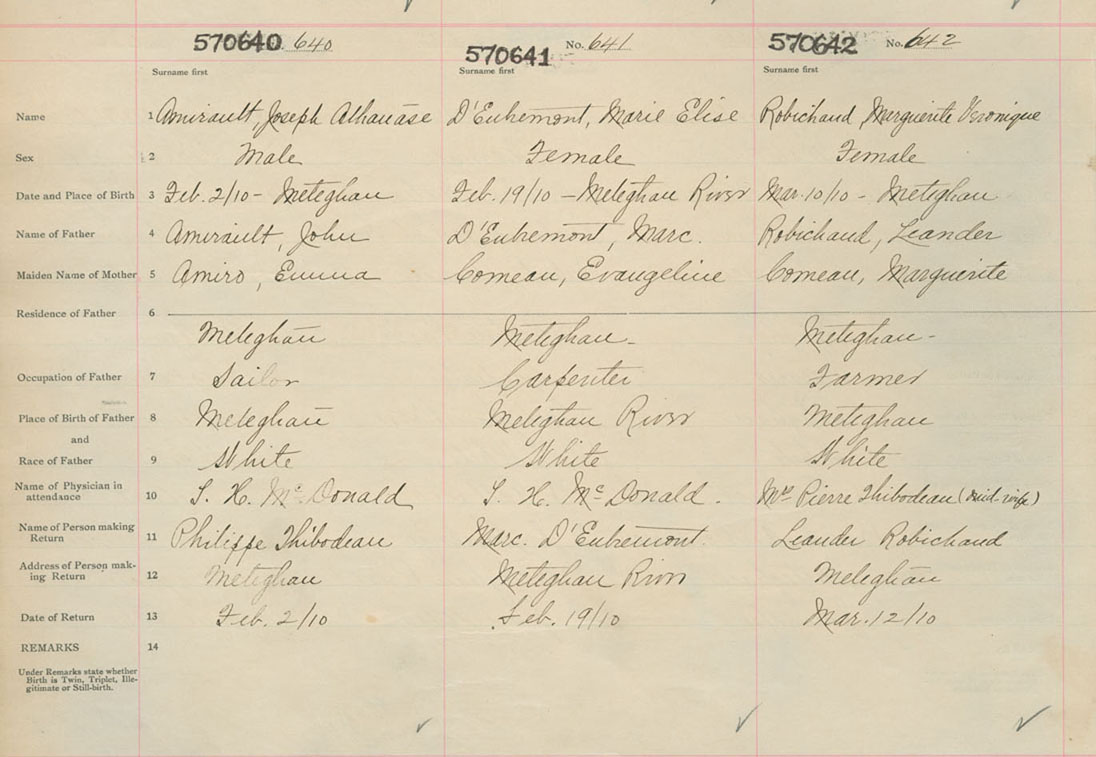 570640 640 570641 No. 641 570642 No. 642
Surname first Surname first Surname first
Name 1 Amirault, Joseph Athanase D'Entremont, Marie Elise Robichaud, Marguerite Veronique
Sex 2 Male Female Female
Date and Place of Birth 3 Feb. 2/10 - Meteghan Feb. 19/10 - Meteghan River Mar. 10/10 - Meteghan
Name of Father 4 Amirault, John D'Entremont, Marc. Robichaud, Leander
Maiden Name of Mother 5 Amiro, Emma Comeau, Evangeline Comeau, Marguerite
Residence of Father 6
Meteghan Meteghan - Meteghan -
Occupation of Father 7 Sailor Carpenter Farmer
Place of Birth of Father 8 Meteghan Meteghan River Meteghan
and
Race of Father 9 White White White
Name of Physician in
attendance 10 S. H. McDonald S. H. McDonald. Mrs Pierre Thibodeau (mid-wife)
Name of Person making
Return 11 Philippe Thibodeau Marc. D'Entremont. Leander Robichaud
Address of Person mak-
ing Return 12 Meteghan Meteghan River Meteghan
Date of Return 13 Feb. 2/10 Feb. 19/10 Mar. 12/10
REMARKS 14
Under Remarks state whether
Birth is Twin, Triplet, Ille-
gitimate or Still-birth.